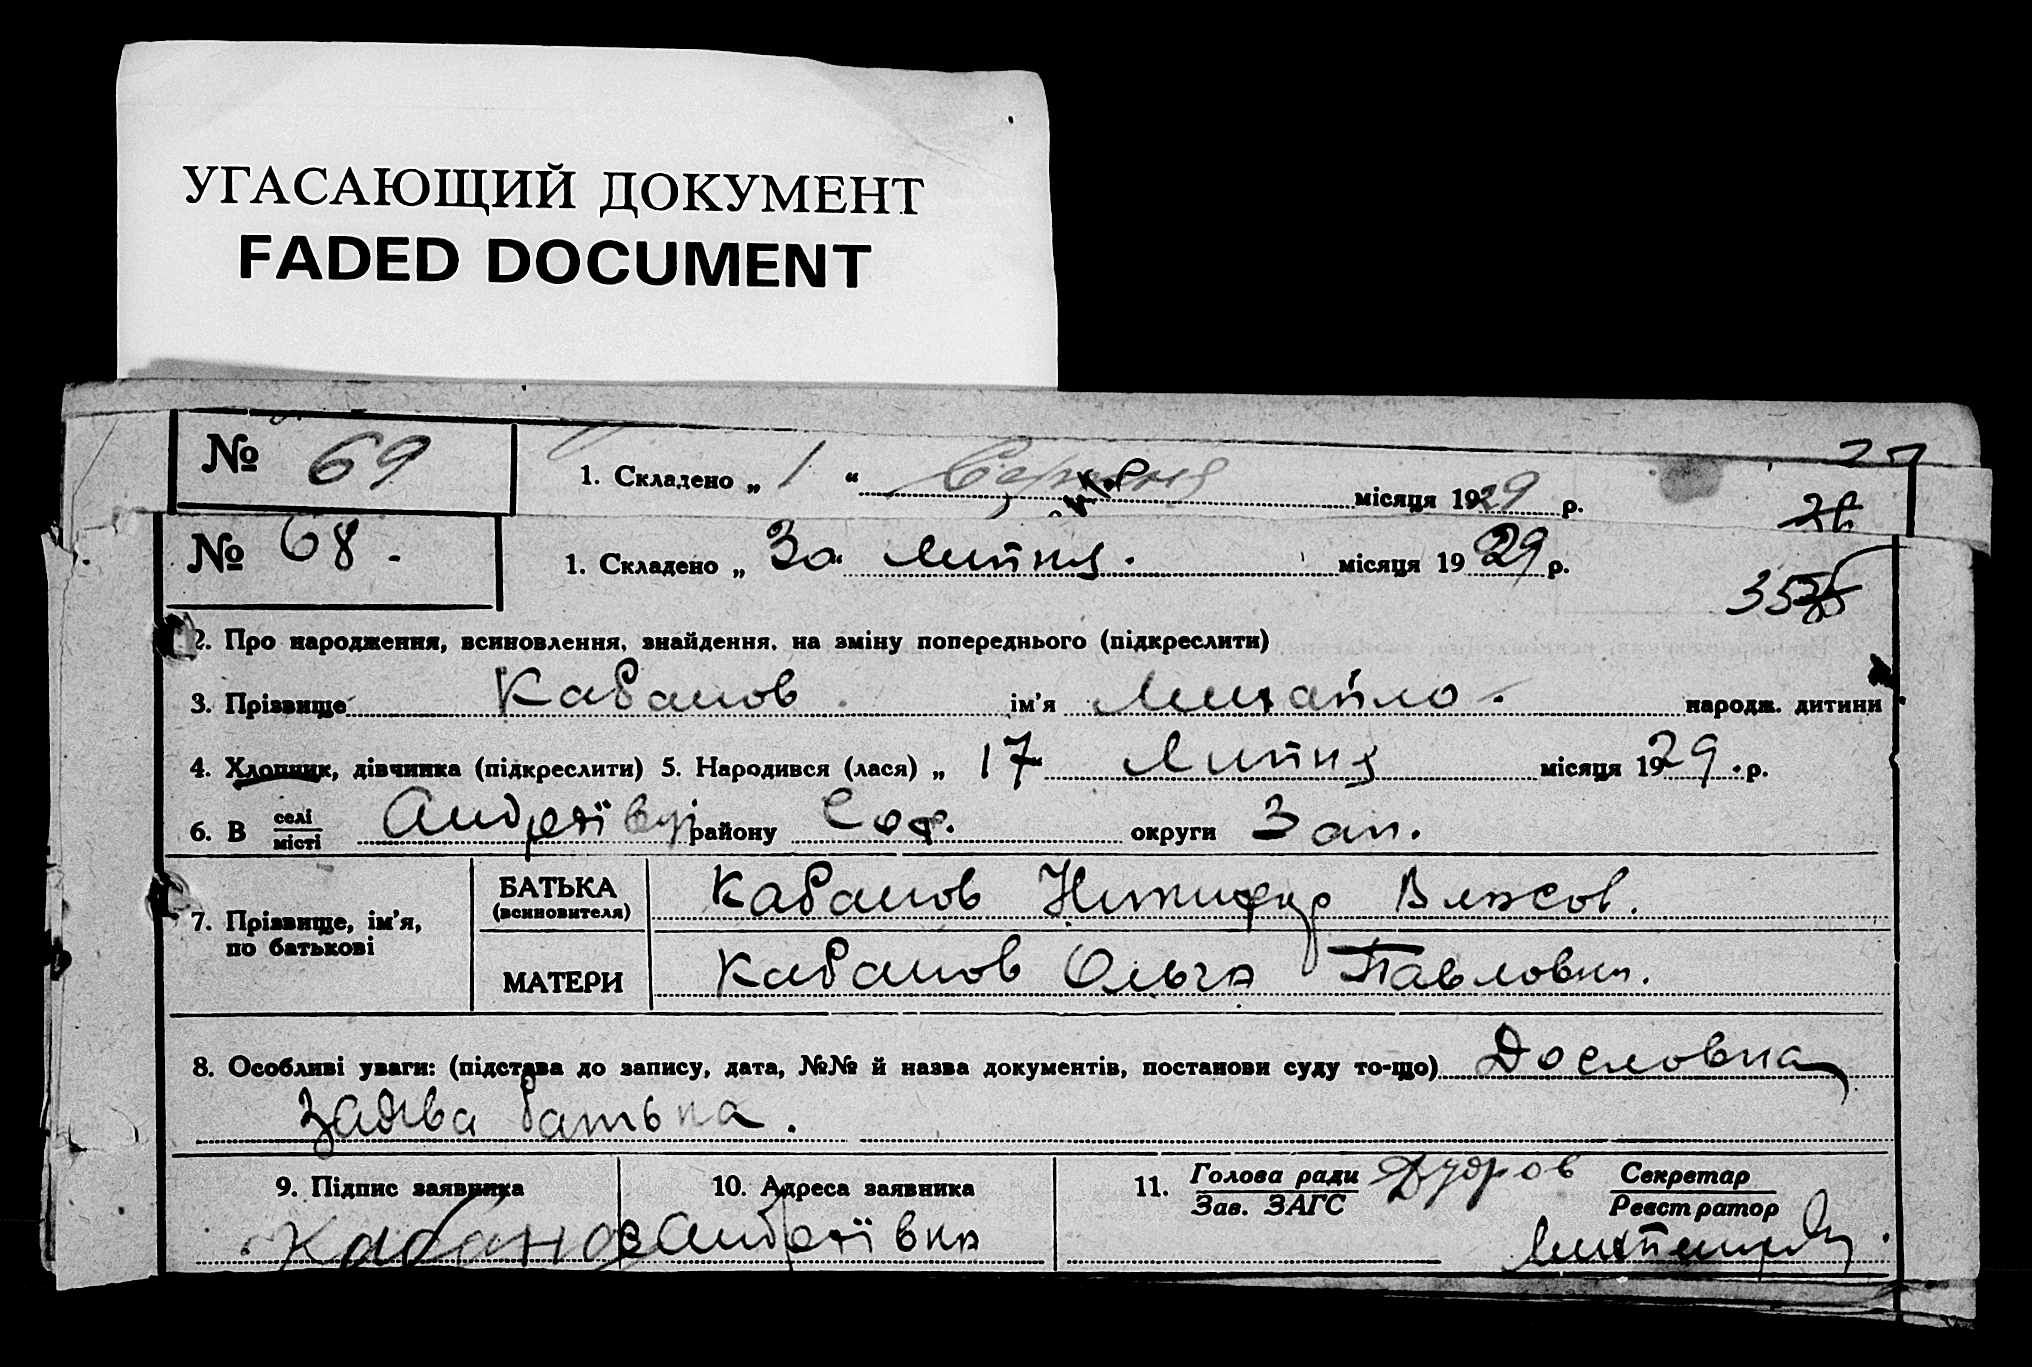 УГАСАЮЩИЙ ДОКУМЕНТ
FADED DOCUMENT
№ 69 1. Складено „ 1 “ Серпня місяця 1929 р. 27
26
№ 68. 1. Складено „ 30 “ Липня. місяця 1929 р.
2. Про народження, всиновлення, знайдення, на зміну попереднього (підкреслити)
3. Прізвище Кабанов ім'я Михайло. народж. дитини
4. Хлопчик, дівчинка (підкреслити) 5. Народився (лася) „ 17 Липня місяця 1929. р.
6. В селі/місті Андреївці району Соф. округи Зап.
7. Прізвище, ім'я, по батькові
БАТЬКА (всиновителя) Кабанов Никифор Власов.
МАТЕРИ Кабанов Ольга Павловна.
8. Особливі уваги: (підстава до запису, дата, №№ й назва документів, постанови суду то-що) Дословна
Заява батька.
9. Підпис заявника 10. Адреса заявника 11. Голова ради/Зав. ЗАГС Секретар/Реєстратор
Кабанов Андреївка